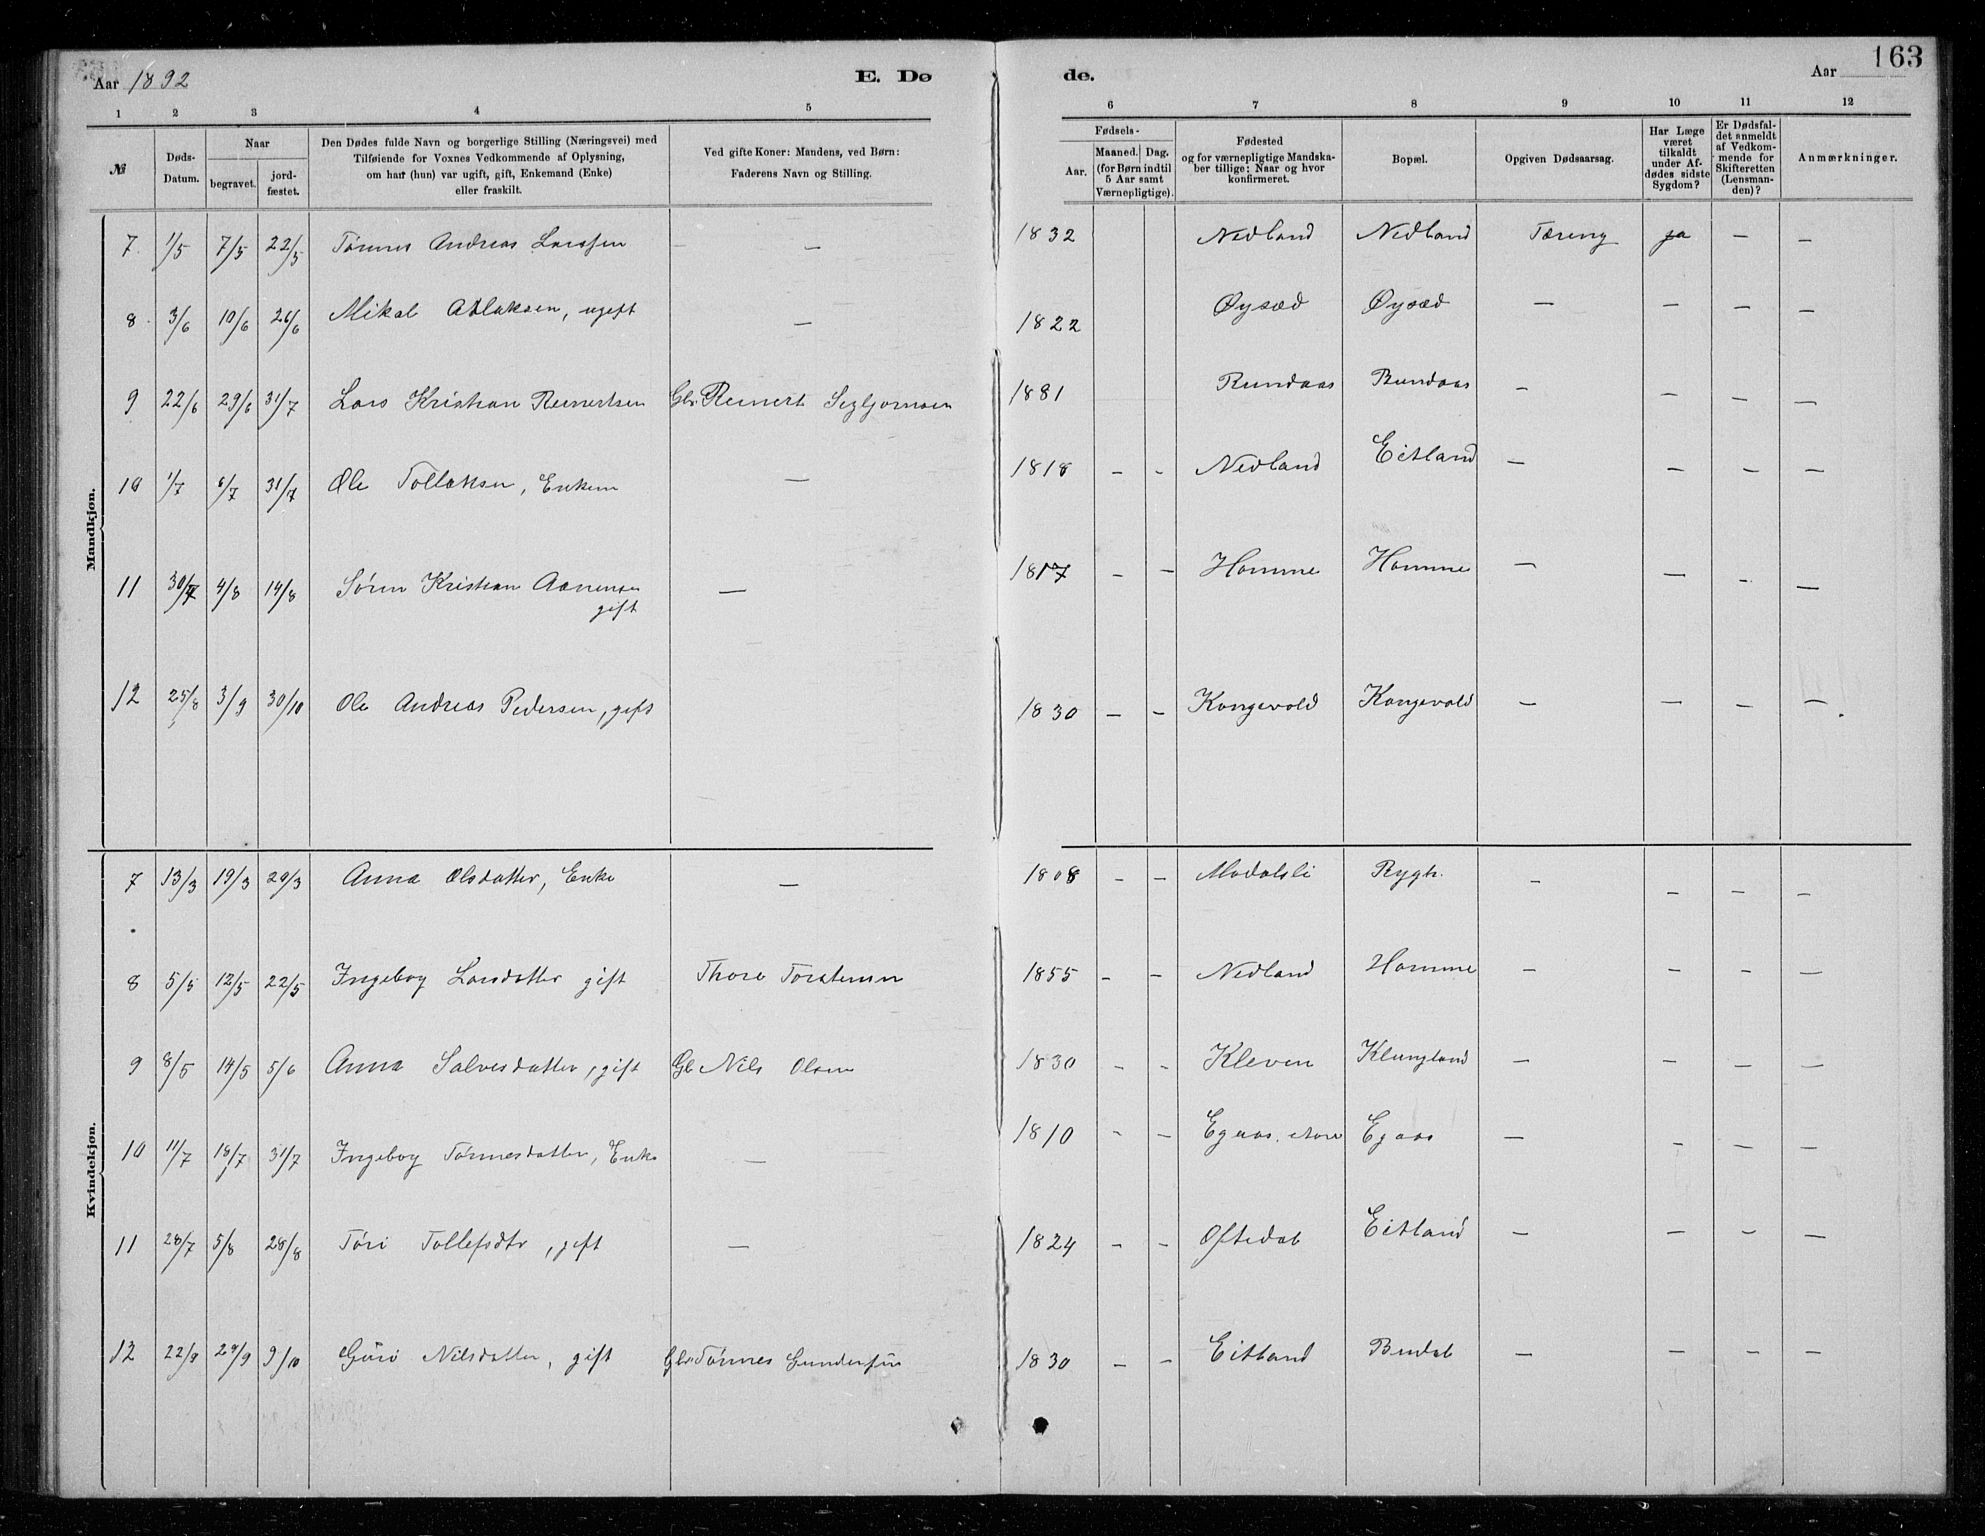 163
Aar 1892 E. Dø de. Aar
1 2 3 4 5 6 7 8 9 10 11 12
№ Døds-Datum. Naar begravet. jordfæstet. Den Dødes fulde Navn og borgerlige Stilling (Næringsvei) med Tilføiende for Voxnes Vedkommende af Oplysning, om han (hun) var ugift, gift, Enkemand (Enke) eller fraskilt. Ved gifte Koner: Mandens, ved Børn: Faderens Navn og Stilling. Fødsels- Aar. Maaned. Dag. (for Børn indtil 5 Aar samt Værnepligtige). Fødested og for værnepligtige Mandskaber tillige: Naar og hvor konfirmeret. Bopæl. Opgiven Dødsaarsag. Har Læge været tilkaldt under Afdødes sidste Sygdom? Er Dødsfaldet anmeldt af Vedkommende for Skifteretten (Lensmanden)? Anmærkninger.
Mandkjøn.
7 1/5 7/5 22/5 Tønnes Andreas Larssen — 1832 Nedland Nedland Tæring ja — —
8 3/6 10/6 26/6 Mikal Atlaksen, ugift — 1822 Øysæd Øysæd — — — —
9 22/6 29/6 31/7 Lars Kristian Reinertsen Gbr. Reinert Sigbjørnsen 1881 Rundaas Rundaas — — — —
10 1/7 6/7 31/7 Ole Tollaksen, Enkem — 1818 — - Nedland Eitland — — — —
11 30/7 4/8 14/8 Søren Kristian Aanensen — 1817 — — Homme Homme — — — —
gift
12 25/8 3/9 30/10 Ole Andreas Pedersen, gift 1830 — — Kongevold Kongevold — — — —
Kvindekjøn.
7 13/3 19/3 20/3 Anna Olsdatter, Enke — 1808 — — Modalsli Rygh. — — — —
8 5/5 12/5 22/5 Ingeborg Larsdatter gift Thore Torstensen 1855 — — Nedland Homme — — — —
9 8/5 14/5 5/6 Anna Salvesdatter, gift Gb Nils Olsen 1830 — — Kleven Klungland — — — —
10 11/7 18/7 31/7 Ingeborg Tønnesdatter, Enke — 1810 - — Egaas Egaas — — — —
11 28/7 5/8 28/8 Tøri Tollefsdtr, gift — 1824 — — Oftedal Eitland — — — —
12 22/9 29/9 9/10 Guro Nilsdatter, gift Gbr Tønnes Gundersen 1830 — — Eitland Budal — — — —